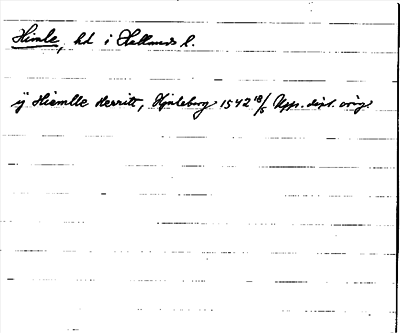 Himle, hd i Hallands l.
ij Hiemlle Herritt, Hjuleberg 1542 18/5 Upps. dipl. orig.